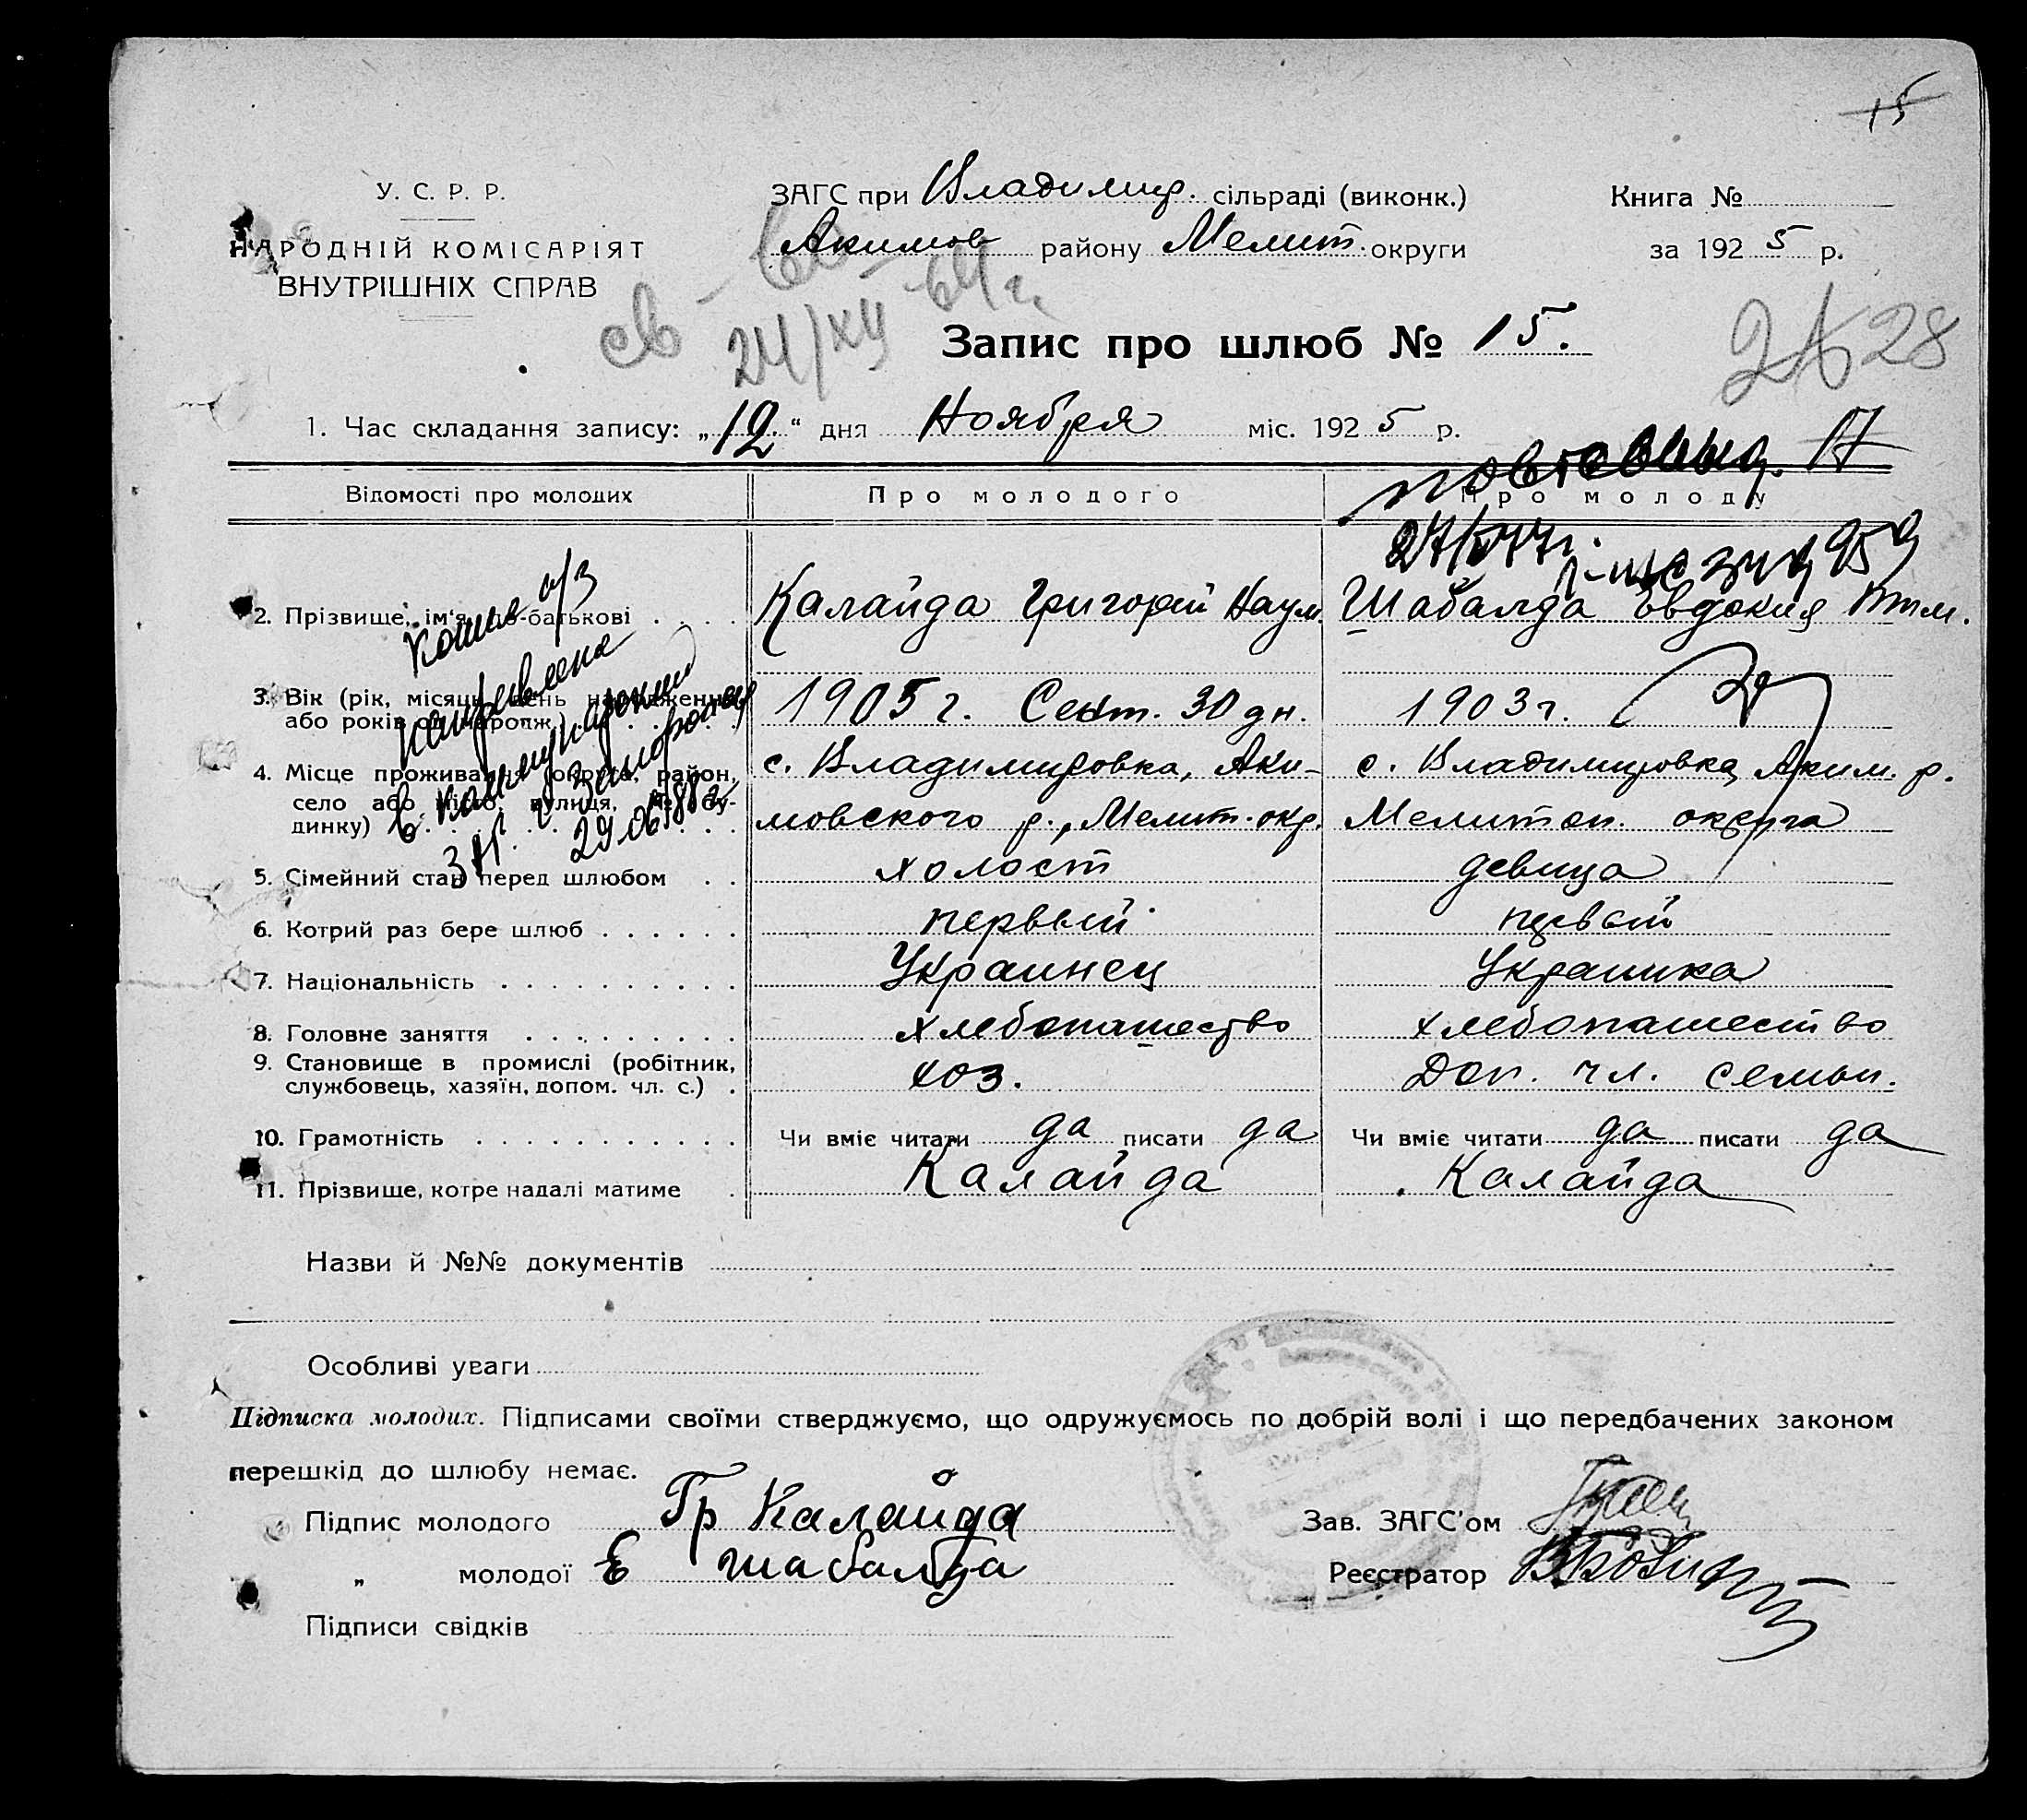 15
У. С. Р. Р.
НАРОДНІЙ КОМІСАРІЯТ
ВНУТРІШНІХ СПРАВ
ЗАГС при Владимир. сільраді (виконк.)
Акимов району Мелит. округи
Книга №
за 1925 р.
св
24/XII -64 г.
Запис про шлюб № 15.
28
1. Час складання запису: „12.“ дня Ноября міс. 1925 р.
Відомості про молодих Про молодого Про молоду
повт. свид.
Копия а/з
направлена
в Коммунарский
ЗАГС г. Запорожья
29.06.88 г.
2. Прізвище, ім'я, по-батькові Калайда Григорий Наум. Шабалда Евдокия
3. Вік (рік, місяць, день народження або років од народж.) 1905 г. Сент. 30 дн. 1903 г.
4. Місце проживання (округа, район, с. Владимировка, Аки- с. Владимировка, Аким. р.
село або місто, вулиця, № бу- мовского р., Мелит. окр. Мелитоп. округа
динку)
5. Сімейний стан перед шлюбом холост девица
6. Котрий раз бере шлюб первый первый
7. Національність Украинец Украинка
8. Головне заняття хлебопашество хлебопашество
9. Становище в промислі (робітник, хоз. Доп. чл. семьи.
службовець, хазяїн, допом. чл. с.)
10. Грамотність Чи вміє читати да писати да Чи вміє читати да писати да
11. Прізвище, котре надалі матиме Калайда Калайда
Назви й №№ документів
Особливі уваги
Підписка молодих. Підписами своїми стверджуємо, що одружуємось по добрій волі і що передбачених законом
перешкід до шлюбу немає.
Підпис молодого Гр Калайда
Зав. ЗАГС'ом
„ молодої Е Шабалда
Реєстратор
Підписи свідків